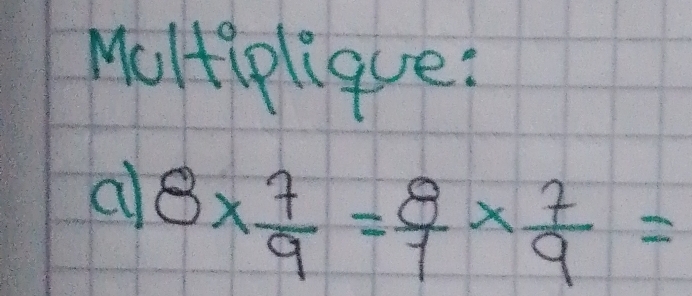 Multiplique:
a) 8 × 7/9 = 8/1 × 7/9 =